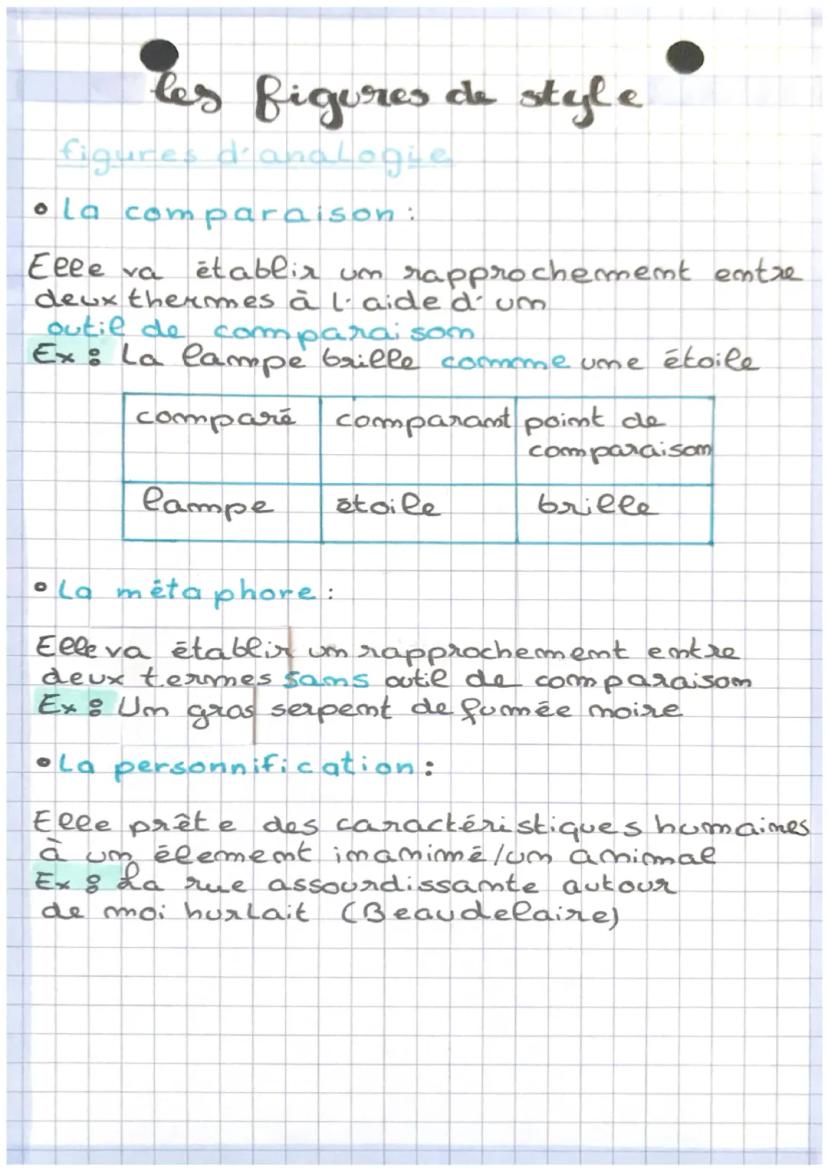 les figures de style
figures d'analogie
• La comparaison :
Elle va établir un rapprochement entre
deux thermes à l'aide d'un
outil de comparaison
Ex : La lampe brille comme une étoile
comparé comparant point de
comparaison
lampe étoile brille
• La métaphore :
Elle va établir un rapprochement entre
deux termes sans outil de comparaison
Ex : Un gros serpent de fumée noire
• La personnification :
Elle prête des caractéristiques humaines
à un élement inanimé/un animal
Ex : La rue assourdissante autour
de moi hurlait (Beaudelaire)